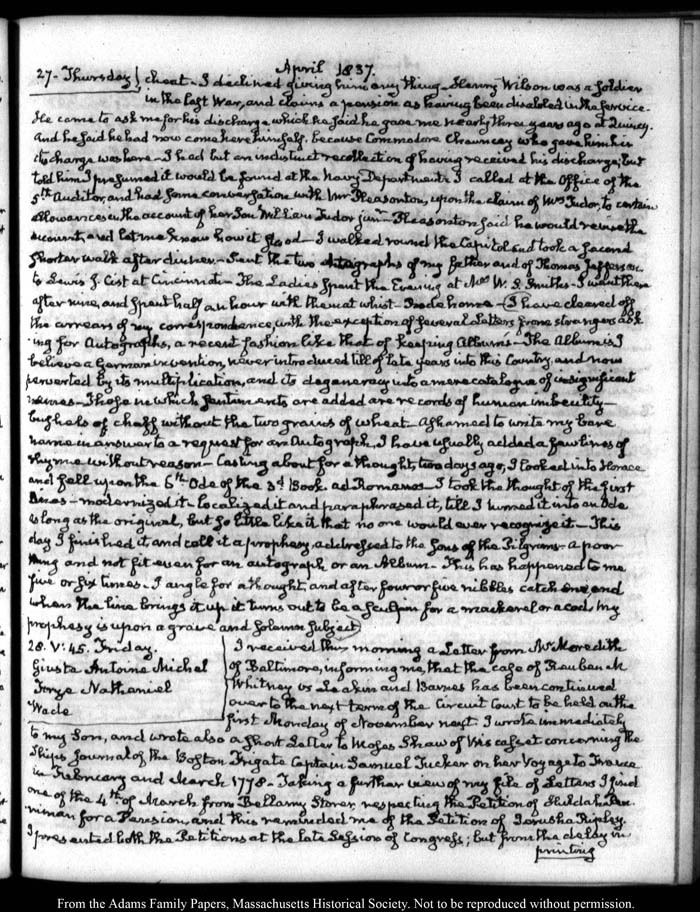 April 1837.
27. Thursday} cheat. I declined giving him any thing. Henry Wilson was a Soldier
in the last War, and claims a pension as having been disabled in the service.
He came to ask me for his discharge which he said he gave me nearly three years ago at Quincy.
And he said he had now come here himself, because Commodore Chauncey who gave him his
discharge was here. I had but an indistinct recollection of having received his discharge; but
told him I presumed it would be found at the Navy Department. I called at the Office of the
5th Auditor, and had some conversation with Mr Pleasonton, upon the claim of Mrs Tudor, to certain
allowances in the account of her Son William Tudor junr. Pleasonton said he would revise the
account, and let me know how it stood. I walked round the Capitol and took a second
shorter walk after dinner. Sent the two autographs of my father and of Thomas Jefferson
to Lewis J. Cist at Cincinnati. The Ladies spent the Evening at Mrs W. S. Smith's. I went there
after nine, and spent half an hour with them at whist. Rode home. (I have cleared off
the arrears of my correspondence, with the exception of several Letters from strangers ask
ing for Autographs, a recent fashion like that of keeping Albums. The Album is I
believe a German invention, never introduced till of late years into this Country, and now
perverted by its multiplication, and its degeneracy into a mere catalogue of insignificant
names. Those in which sentiments are added are records of human imbecility
bushels of chaff without the two grains of wheat. Ashamed to write my bare
name in answer to a request for an Autograph, I have usually added a few lines of
rhyme without reason. Casting about for a thought, two days ago, I looked into Horace
and fell upon the 6th Ode of the 3d Book. ad Romanos. I took the thought of the first
lines. modernized it. localized it and paraphrased it, till I turned it into an Ode
as long as the original, but so little like it that no one would ever recognize it. This
day I finished it and call it a prophesy, addressed to the Sons of the Pilgrims. a poor
thing and not fit even for an autograph or an Album. This has happened to me
five or six times. I angle for a thought, and after four or five nibbles catch one and
when the line brings it up it turns out to be a sculpin for a mackerel or a cod. My
prophesy is upon a grave and solemn subject)
28. V:45. Friday.
Giusta Antoine Michel
Torze Nathaniel
Wade
I received this morning a Letter from Mr Meredith
of Baltimore, informing me, that the case of Reuben M
Whitney vs Leakin and Barnes has been continued
over to the next term of the Circuit Court to be held on the
first Monday of November next. I wrote immediately
to my Son, and wrote also a short Letter to Moses Shaw of Wiscasset concerning the
Ship's Journal of the Boston Frigate Captain Samuel Tucker on her Voyage to France
in February and March 1778. Taking a further view of my file of Letters I find
one of the 4th of March from Bellamy Storer, respecting the Petition of
for a Pension, and this reminded me of the Petition of Jerusha Ripley.
I presented both the Petitions at the late Session of Congress; but from the delay in
printing
From the Adams Family Papers, Massachusetts Historical Society. Not to be reproduced without permission.